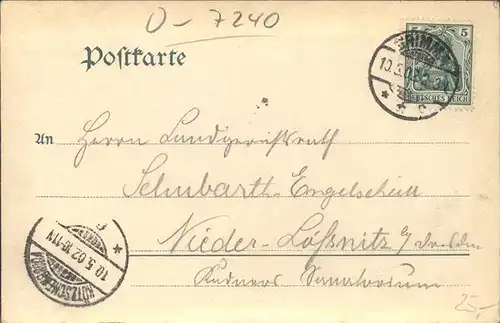 D - 7240
Postkarte
GRIMMA
10.5.02
5 5
DEUTSCHES REICH
An Herrn Landgerichtsrath
Schubarth-Engelschall
Nieder-Lößnitz b/Dresden
Sanatorium
KÖTZSCHENBRODA
10.5.02.10-11V
25,-